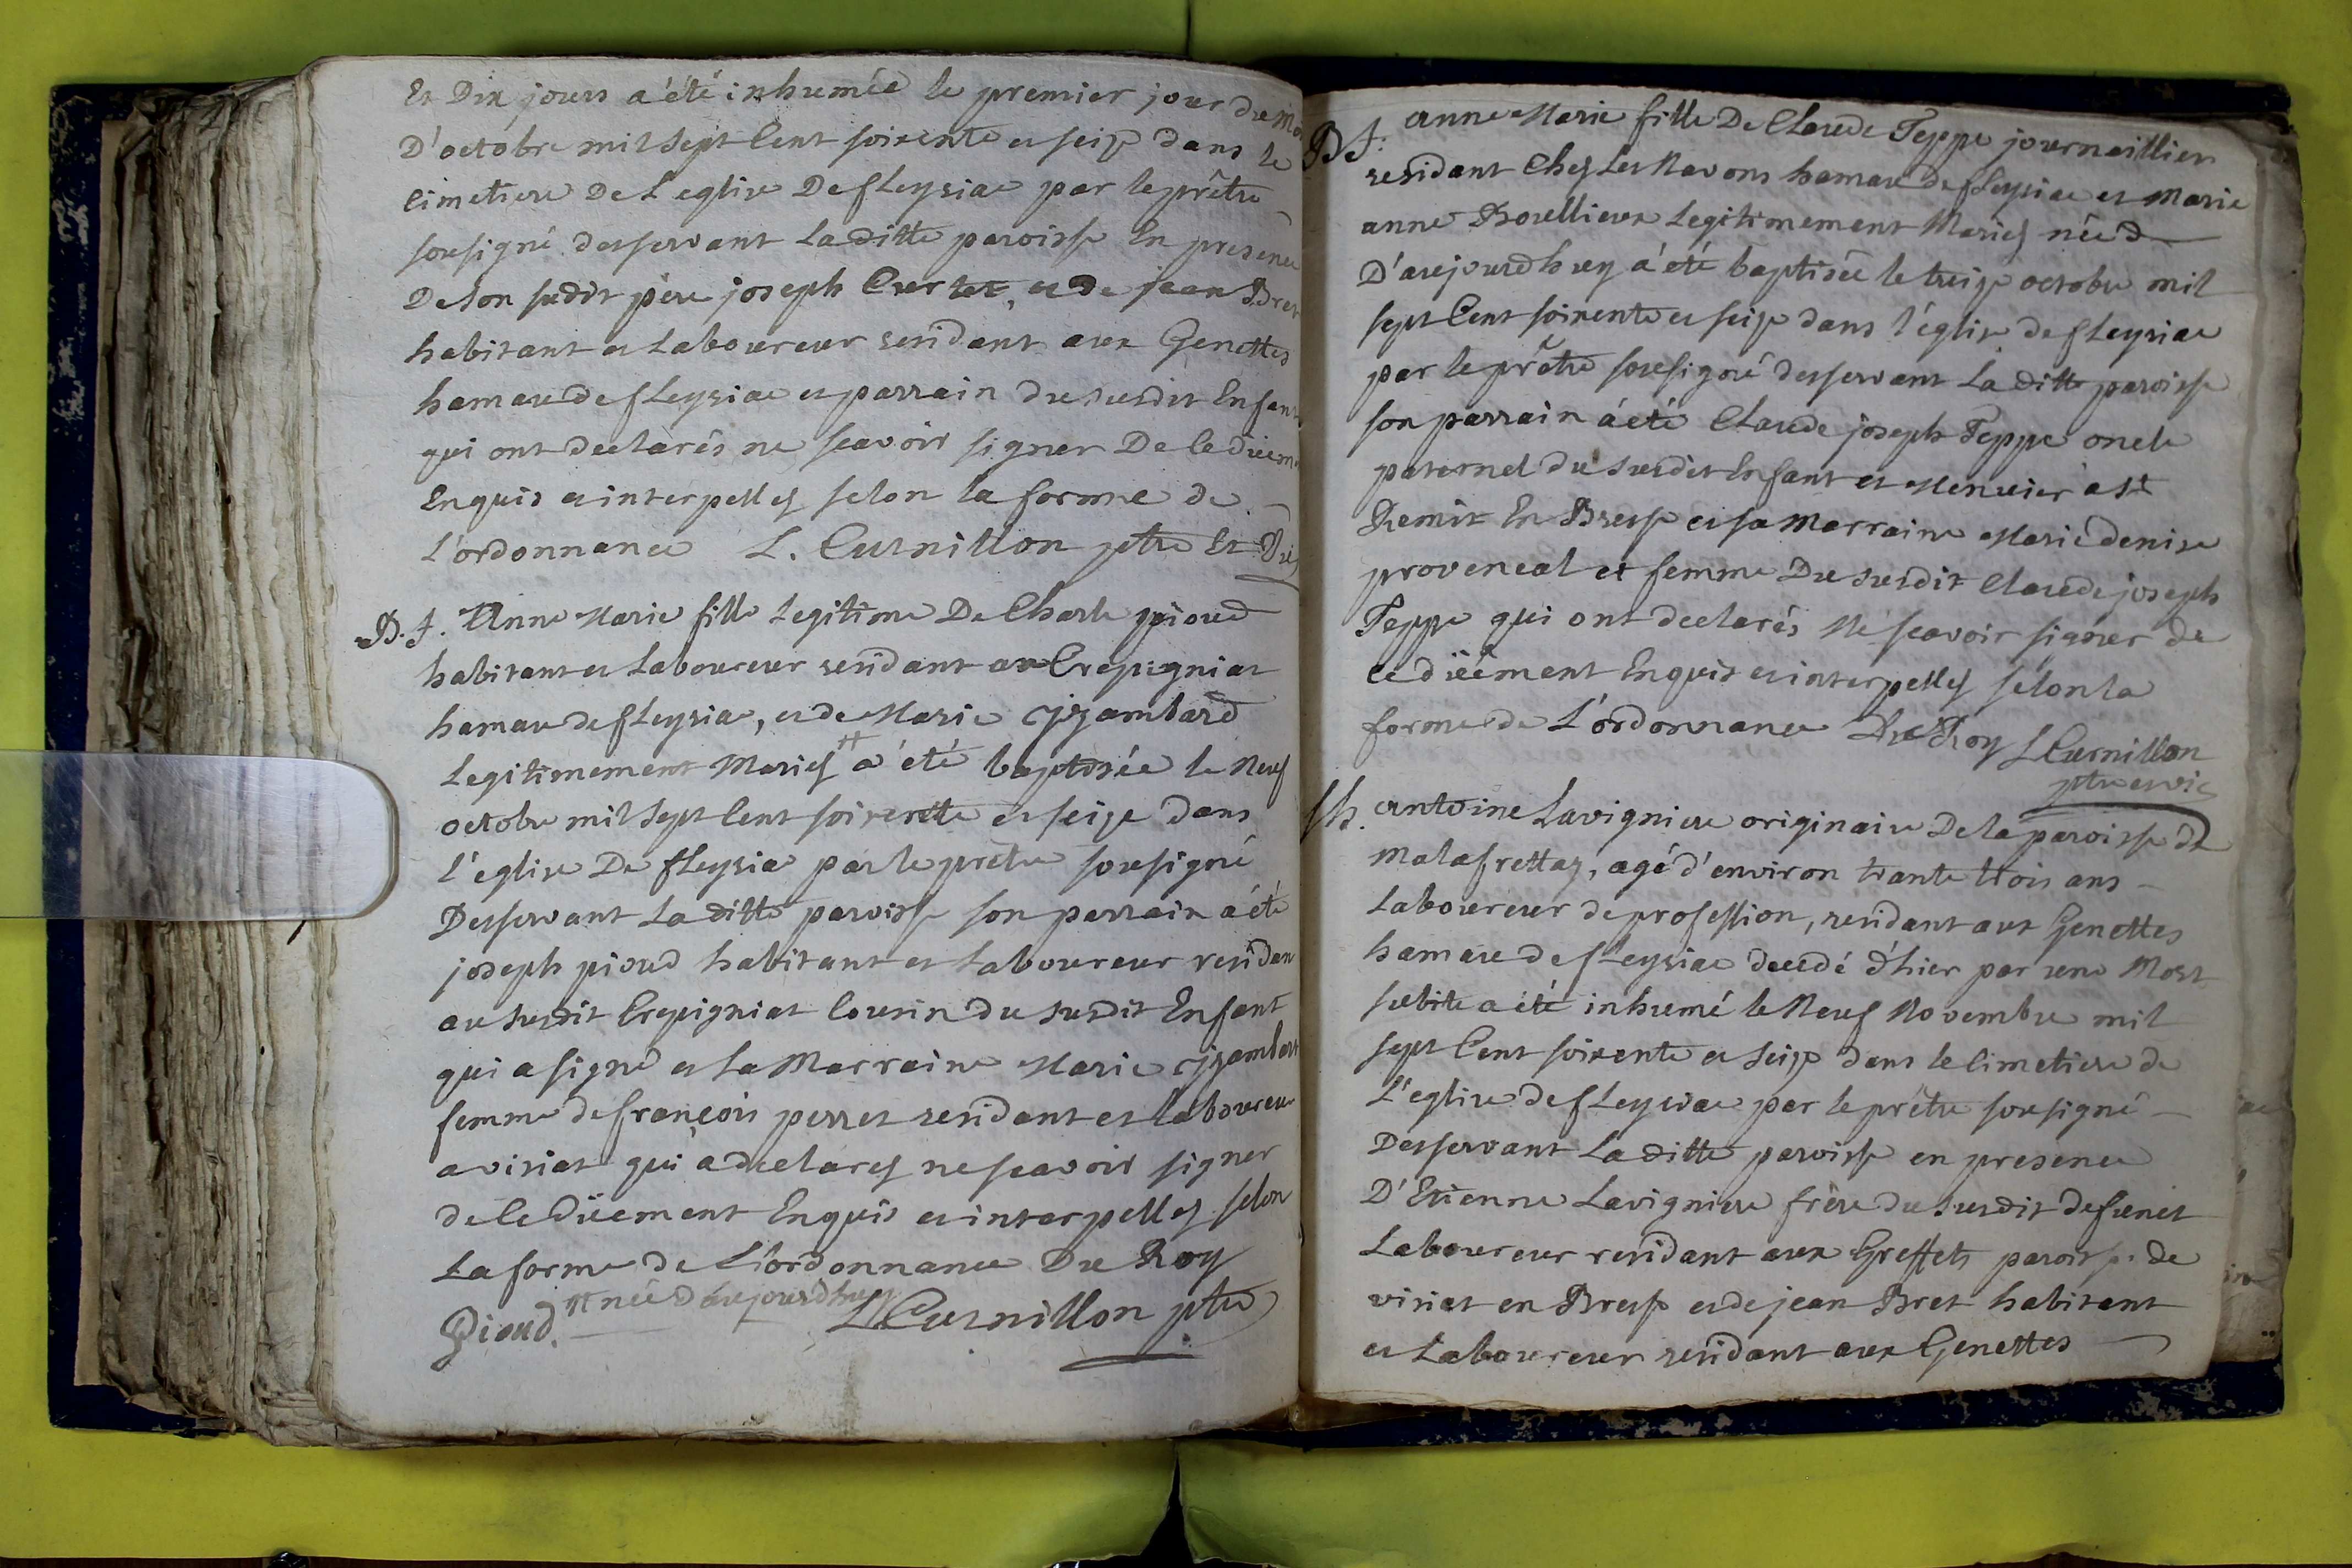 Et Dix jours a été inhumée le premier jour du Mo
D'octobre mil sept Cent soixente et seize dans le
Cimetiere De L'eglise De fleyriac par le prêtre
sousigné desservant La ditte paroisse En presence
De son sudit père joseph Curtet, et de jean Bret
habitant et Laboureur residant aux Genettes
hamau de fleyriac et parrain du susdit Enfant
qui ont declarés ne scavoir signer De Ce düem
Enquis et interpellez selon la forme de
L'ordonnance L. Curnillon ptre Et Vic
B. f. Anne Marie fille Legitime De Charle pioud
habitant et Laboureur residant au Crepigniat
hamau de fleyria, et de Marie Gjambard
Legitimement Mariez # a été baptisée le Neuf
octobre mil sept Cent soixente et seize dans
L'eglise De fleyria par le prêtre sousigné
Desservant La ditte paroisse son parrain a été
joseph pioud habitant et Laboureur residan
au susdit Crepigniat Cousin du susdit Enfant
qui a signé et La Marraine Marie Gjambart
femme de françois perret residant et laboureur
a viriat qui à declarez ne scavoir signer
de Ce Düement Enquis et interpellez selon
La forme de L'ordonnance Du Roy
Pioud. # née d'aujourdhuy L Curnillon ptre
B f. anne Marie fille De Claude Teppe journaillier
residant Chez Les Navons hamau de fleyriac et Marie
anne Roullieux Legitimement Mariez née
D'aujourdhuy a été baptisée le treize octobre mil
sept Cent soixente et seize dans l'église de fleyriac
par le prêtre sousigné desservant La ditte paroisse
son parrain a été Claude joseph Teppe oncle
paternel du susdit Enfant et Menuier a St
Remit En Bresse et sa Marraine Marie denise
provencal et femme Du susdit Claude joseph
Teppe qui ont declarés Ne scavoir signer de
Ce düement Enquis et interpellez selon la
forme de L'ordonnance Du Roy L Curnillon
ptre et vic
Sh. Antoine Lavigniere originaire De la paroisse de
Malafrettaz, agé d'environ trante trois ans
Laboureur de profession, residant aux Genettes
hamau de fleyriac decedé d'hier par une Mort
subite a été inhumé le Neuf Novembre mil
sept Cent soixente et seize dans le Cimetiere de
L'eglise de fleyriac par le prêtre sousigné
Desservant La ditte paroisse en presence
D'Etienne Lavigniere frère du susdit defunct
Laboureur residant aux Greffets paroisse de
viriat en Bresse et de jean Bret habitant
et Laboureur residant aux Genettes